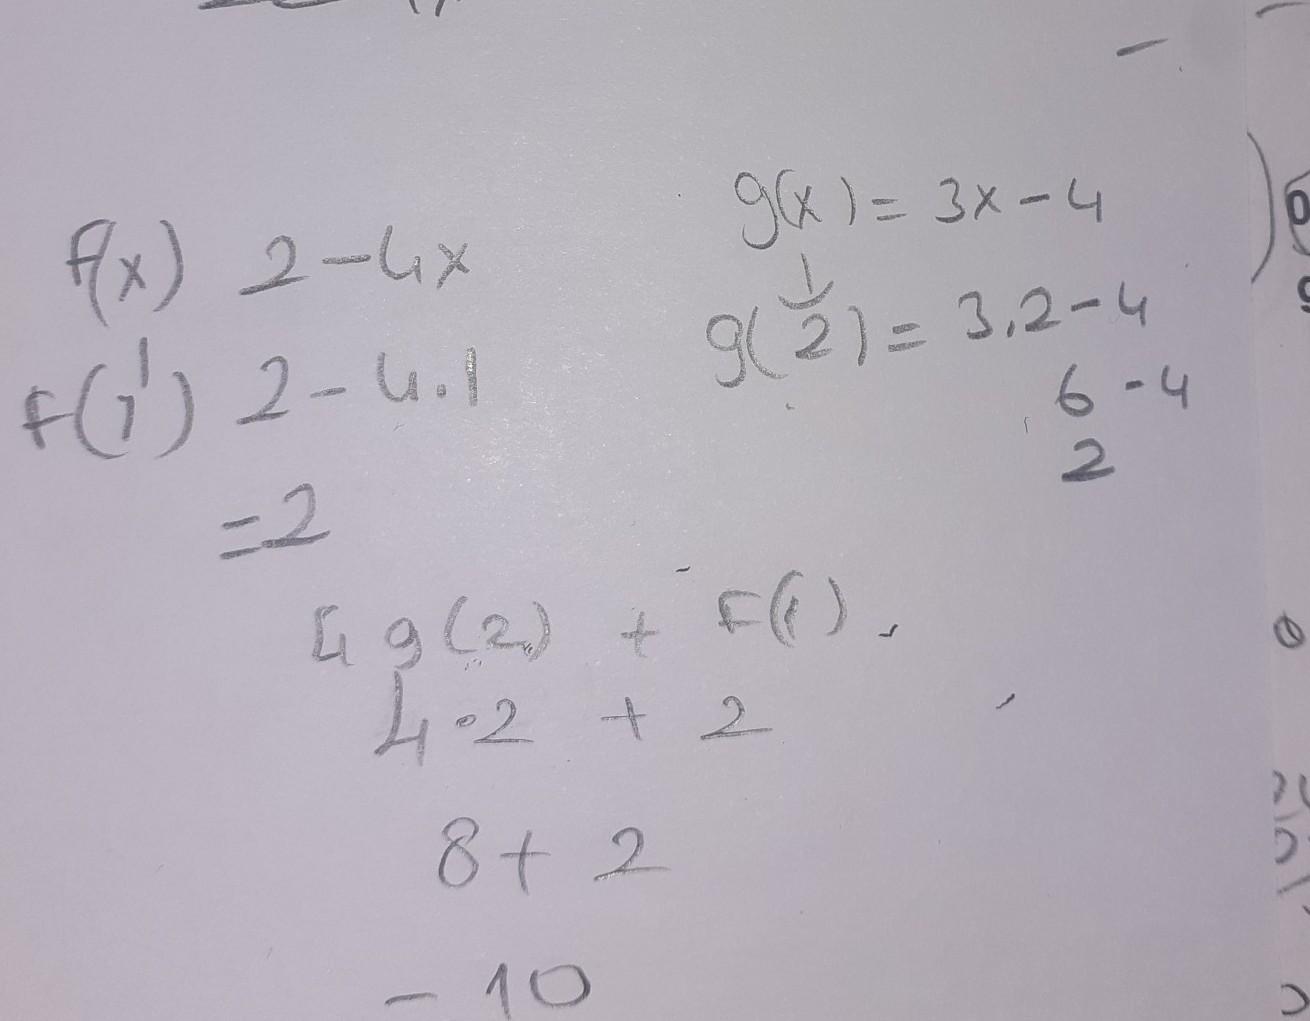 f(x) 2-4x
F(1) 2-4.1
=2
g(x) = 3x-4
g(2) = 3.2-4
6-4
2
4g(2) + F(1).
4•2 + 2
8+2
- 10